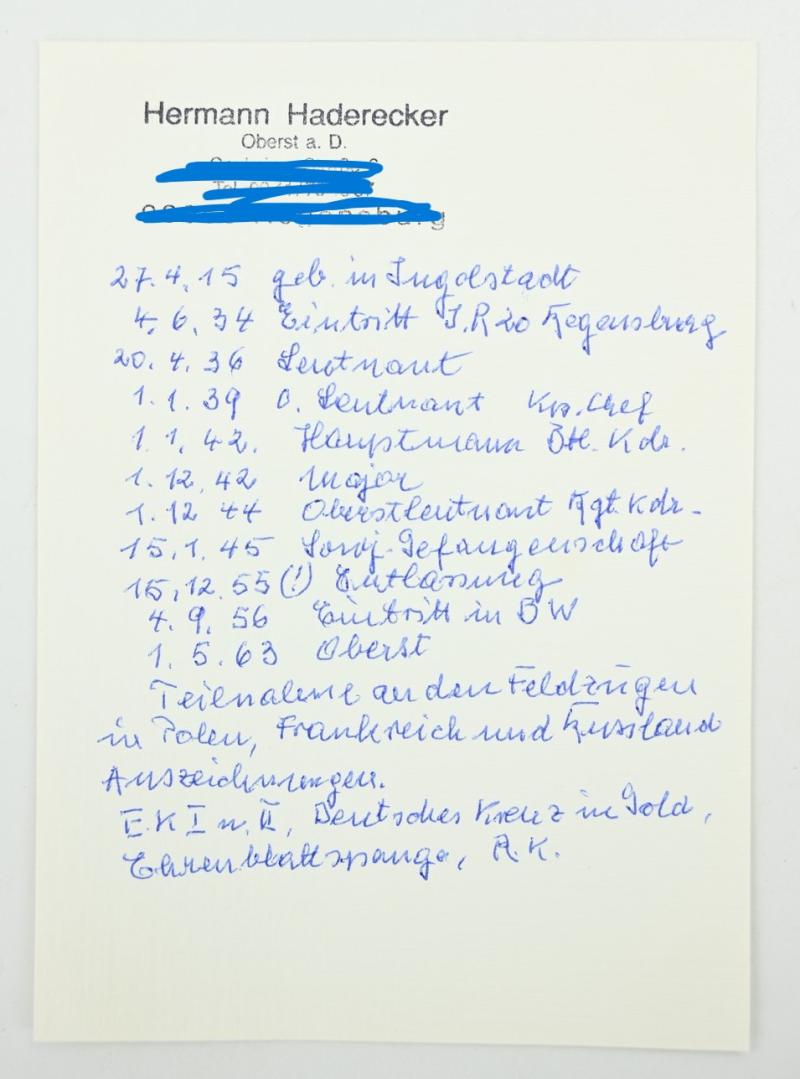 Hermann Haderecker
Oberst a. D.
27.4.15 geb. in Ingolstadt
4.6.34 Eintritt I.R 20 Regensburg
20.4.36 Leutnant
1.1.39 O. Leutnant Kp. Chef
1.1.42. Hauptmann Btl. Kdr.
1.12.42 Major
1.12 44 Oberstleutnant Rgt. Kdr.
15.1.45 Sowj. Gefangenschaft
15.12.55 (!) Entlassung
4.9.56 Eintritt in BW
1.5.63 Oberst
Teilnahme an den Feldzügen
in Polen, Frankreich und Russland
Auszeichnungen.
E.K I u. II, Deutsches Kreuz in Gold,
Ehrenblattspange, R.K.